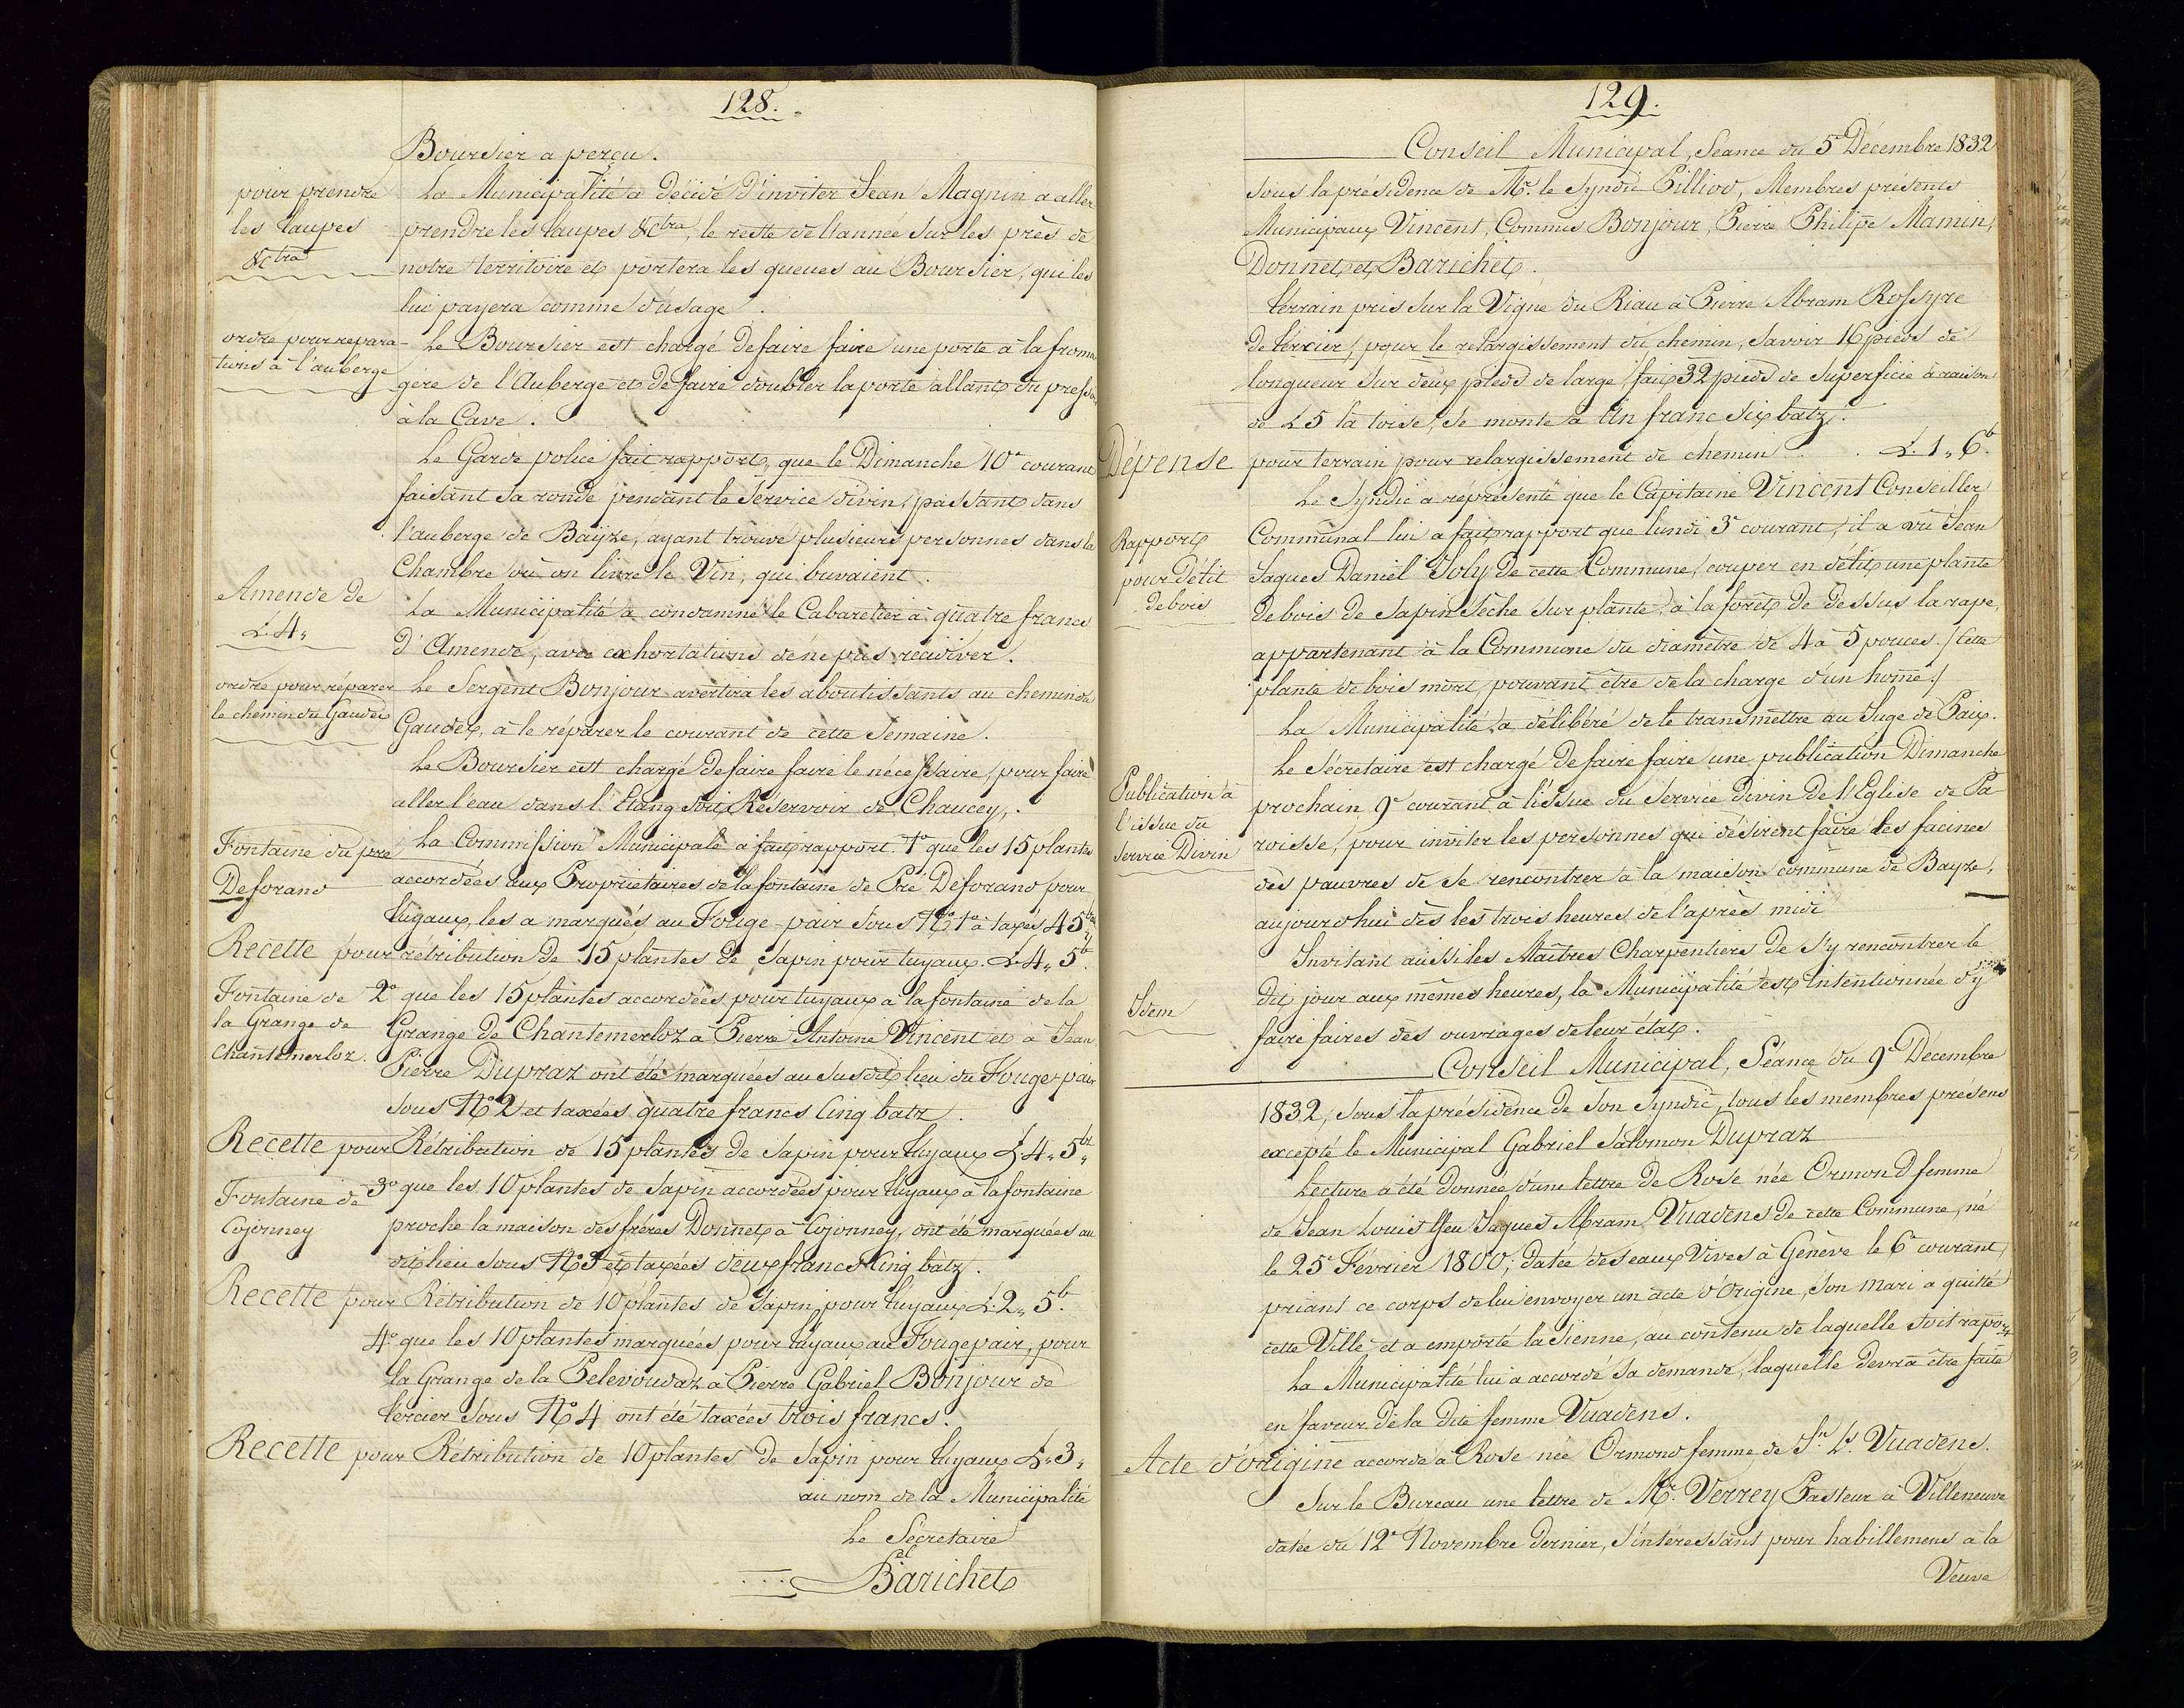 128.
Boursier a perçu.
pour prendre
les taupes
&ctra
La Municipalité a décidé d'inviter Jean Magnin a aller
prendre les taupes &ctra, le reste de l'année sur les près de
notre territoire et portera les queues au Boursier, qui les
lui payera comme d'usage.
ordre pour repara-
tions à l'auberge
Le Boursier est chargé de faire faire une porte à la froma
gère de l'Auberge et de faire doubler la porte allant du pressoir
à la Cave.
Le Garde police fait rapport, que le Dimanche 10e courant
faisant sa ronde pendant le Service divin, passant dans
l'auberge de Bayze, ayant trouvé plusieurs personnes dans la
Chambre où on livre le Vin, qui buvaient.
Amende de
L. 4 "
La Municipalité a condamné le Cabaretier à quatre francs
d'Amende, avec exhortations de ne pas récidiver.
ordre pour réparer
le chemin du Gaudet
Le Sergent Bonjour avertira les aboutissants au chemin du
Gaudet, à le réparer le courant de cette Semaine.
Le Boursier est chargé de faire faire le nécessaire, pour faire
aller l'eau dans l'Etang soit Réservoir de Chaucey.
Fontaine du pré
Deforand
La Commission Municipale a fait rapport. 1o que les 15 plantes
accordées aux Propriétaires de la fontaine de Pré Deforand pour
tuyaux, les a marqués au Fouge-pair sous No 1o a taxés 45 btz
Recette pour rétribution de 15 plantes de Sapin pour tuyaux. L. 4 " 5 b.
Fontaine de
la Grange de
Chantemerloz.
2o que les 15 plantes accordées pour tuyaux a la fontaine de la
Grange de Chantemerloz a Pierre Antoine Vincent et à Jean
Pierre Dupraz ont été marquées au susdit lieu du Fouge-pair
sous No 2 et taxées quatre francs Cinq batz.
Recette pour Rétribution de 15 plantes de Sapin pour tuyaux L. 4 " 5 bz "
Fontaine de
Cojonney
3o que les 10 plantes de Sapin accordées pour tuyaux à la fontaine
proche la maison des frères Donnet à Cojonney, ont été marquées au
dit lieu sous No 3 et taxées deux francs Cinq batz.
Recette pour Rétribution de 10 plantes de Sapin pour tuyaux L. 2 " 5 b.
4o que les 10 plantes marquées pour tuyaux au Fougepair, pour
la Grange de la Pelevoudaz à Pierre Gabriel Bonjour de
tercier sous No 4 ont été taxées trois francs.
Recette pour Rétribution de 10 plantes de Sapin pour tuyaux L. 3 "
au nom de la Municipalité
Le Sécretaire
Barichet
129.
Conseil Municipal, Séance du 5e Décembre 1832
sous la présidence de Mr. le Syndic Pilliod, Membres présents
Municipaux Vincent, Commis Bonjour, Pierre Philipe Mamin,
Donnet et Barichet.
terrain pris sur la Vigne du Riau à Pierre Abram Rossyre
de tercier, pour le relargissement du chemin, savoir 16 pieds de
longueur sur deux pieds de large, fait 32 pieds de superficie à raison
de L 5 la toise, se monte a Un franc six batz.
Dépense pour terrain pour relargissement de chemin . . L. 1 " 6 b.
Rapport
pour Détit
de bois
Le Syndic a représenté que le Capitaine Vincent Conseiller
Communal lui a fait rapport que lundi 3e courant, il a vu Jean
Jaques Daniel Joly de cette Commune, couper en détit une plante
de bois de Sapin sèche sur plante, à la forêt de dessus la rape,
appartenant à la Commune du diamètre de 4 à 5 pouces. / Cette
plante de bois mort, pouvant être de la charge d'un home. /
La Municipalité a délibéré de le transmettre au Juge de Paix.
Publication à
l'issue du
Service Divin
Le Sécretaire est chargé de faire faire une publication Dimanche
prochain 9e courant à l'issue du Service divin de l'Eglise de Pa
roisse, pour inviter les personnes qui désirent faire les facines
des pauvres de se rencontrer à la maison commune de Bayze,
aujourd'hui dès les trois heures de l'après midi
Idem
Invitant aussi les Maitres Charpentiers de s'y rencontrer le
dit jour aux mêmes heures, la Municipalité est intentionnée d'y
faire faires des ouvrages de leur état.
Conseil Municipal, Séance du 9e Décembre
1832, sous la présidence de son Syndic, tous les membres présens
excepté le Municipal Gabriel Salomon Dupraz
Lecture a été donnée d'une lettre de Rose née Ormond femme
de Jean Louis feu Jaques Abram Vuadens de cette Commune, né
le 25e Février 1800, datée des eaux Vives à Genève le 6e courant,
priant ce corps de lui envoyer un acte d'Origine, son mari a quitté
cette Ville et a emporté la sienne, au contenu de laquelle soit raport
La Municipalité lui a accordé sa demande, laquelle devra être faite
en faveur de la dite femme Vuadens.
Acte d'origine accordé à Rose née Ormond femme de Jn Ls. Vuadens.
Sur le Bureau une lettre de Mr. Verrey Pasteur à Villeneuve
datée du 12e Novembre dernier, s'intéressant pour habillemens a la
Veuve